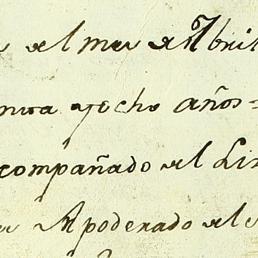 del mes de Abril
nta y ocho años=
compañado del Li
Apoderado del